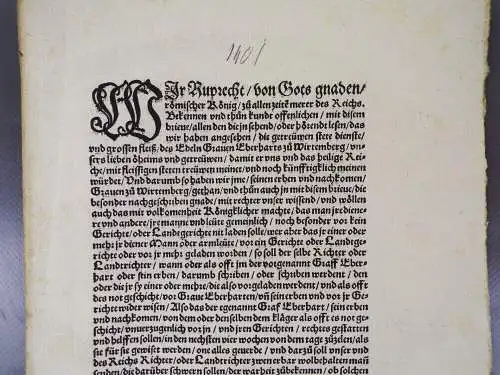 1401
WIr Ruprecht / von Gots gnaden /
römischer König / zů allen zeitẽ merer des Reichs.
Bekennen vnd thůn kunde offenlichen / mit disem
brieue / allen den die jn sehend / oder hörendt lesen / das
wir haben angesehen / die getrüwen stete dienste /
vnd grossen fleiß / des Edeln Grauen Eberharts zů Wirtemberg / vn-
sers lieben öheims vnd getrüwen / damit er vns vnd das heilige Rei-
che / mit fleissigen steten treüwen meinet / vnd noch künfftiglich meinen
würdet / Vnd darumb so haben wir jme / seinen erben vnd nachkomen /
Grauen zů Wirtemberg / gethan / vnd thůn auch jn mit disem brieue / die
besonder nachgeschriben gnade / mit rechter vnser wissend / vnd wöllen
auch das mit volkomenheit Königklicher machte / das man jr diene-
re vnd andere / jre mann vnd leüte gemeinlich / noch besonder vor kein
Gerichte / oder Landtgerichte nit laden solle / wer aber das je einer oder
mehr jr diener Mann oder armleüte / vor ein Gerichte oder Landtge-
richte oder vor jr mehr geladen worden / so soll der selbe Richter oder
Landtrichter / wann oder als offt jm der vorgenannt Graff Eber-
hart oder sein erben / darumb schriben / oder schriben werdent / den
oder die jr sy einer oder mehre / die also vorgeladen werdent / vnd als offt
des not geschicht / vor Graue Eberharten / vñ sein erben vnd vor jr Ge-
richte wider wisen / Also das der egenannt Graf Eberhart / sein erben
vnd nachkomen / von dem oder denselben dem kläger als offt es not ge-
schicht / vnuerzugenlich vor jn / vnd jren Gerichten / rechtes gestatten
vnd helffen sollen / in den nechsten vier wochen von dem tage zůzelen / als
sie für sie gewist werden / one alles geuerde / vnd darzů soll vnser vnd
des Reichs Richter / oder Landtrichter zwen erbar wolbehalten mañ
senden / die darüber schwern sollen / der warheit zůbekennen / ob solchen